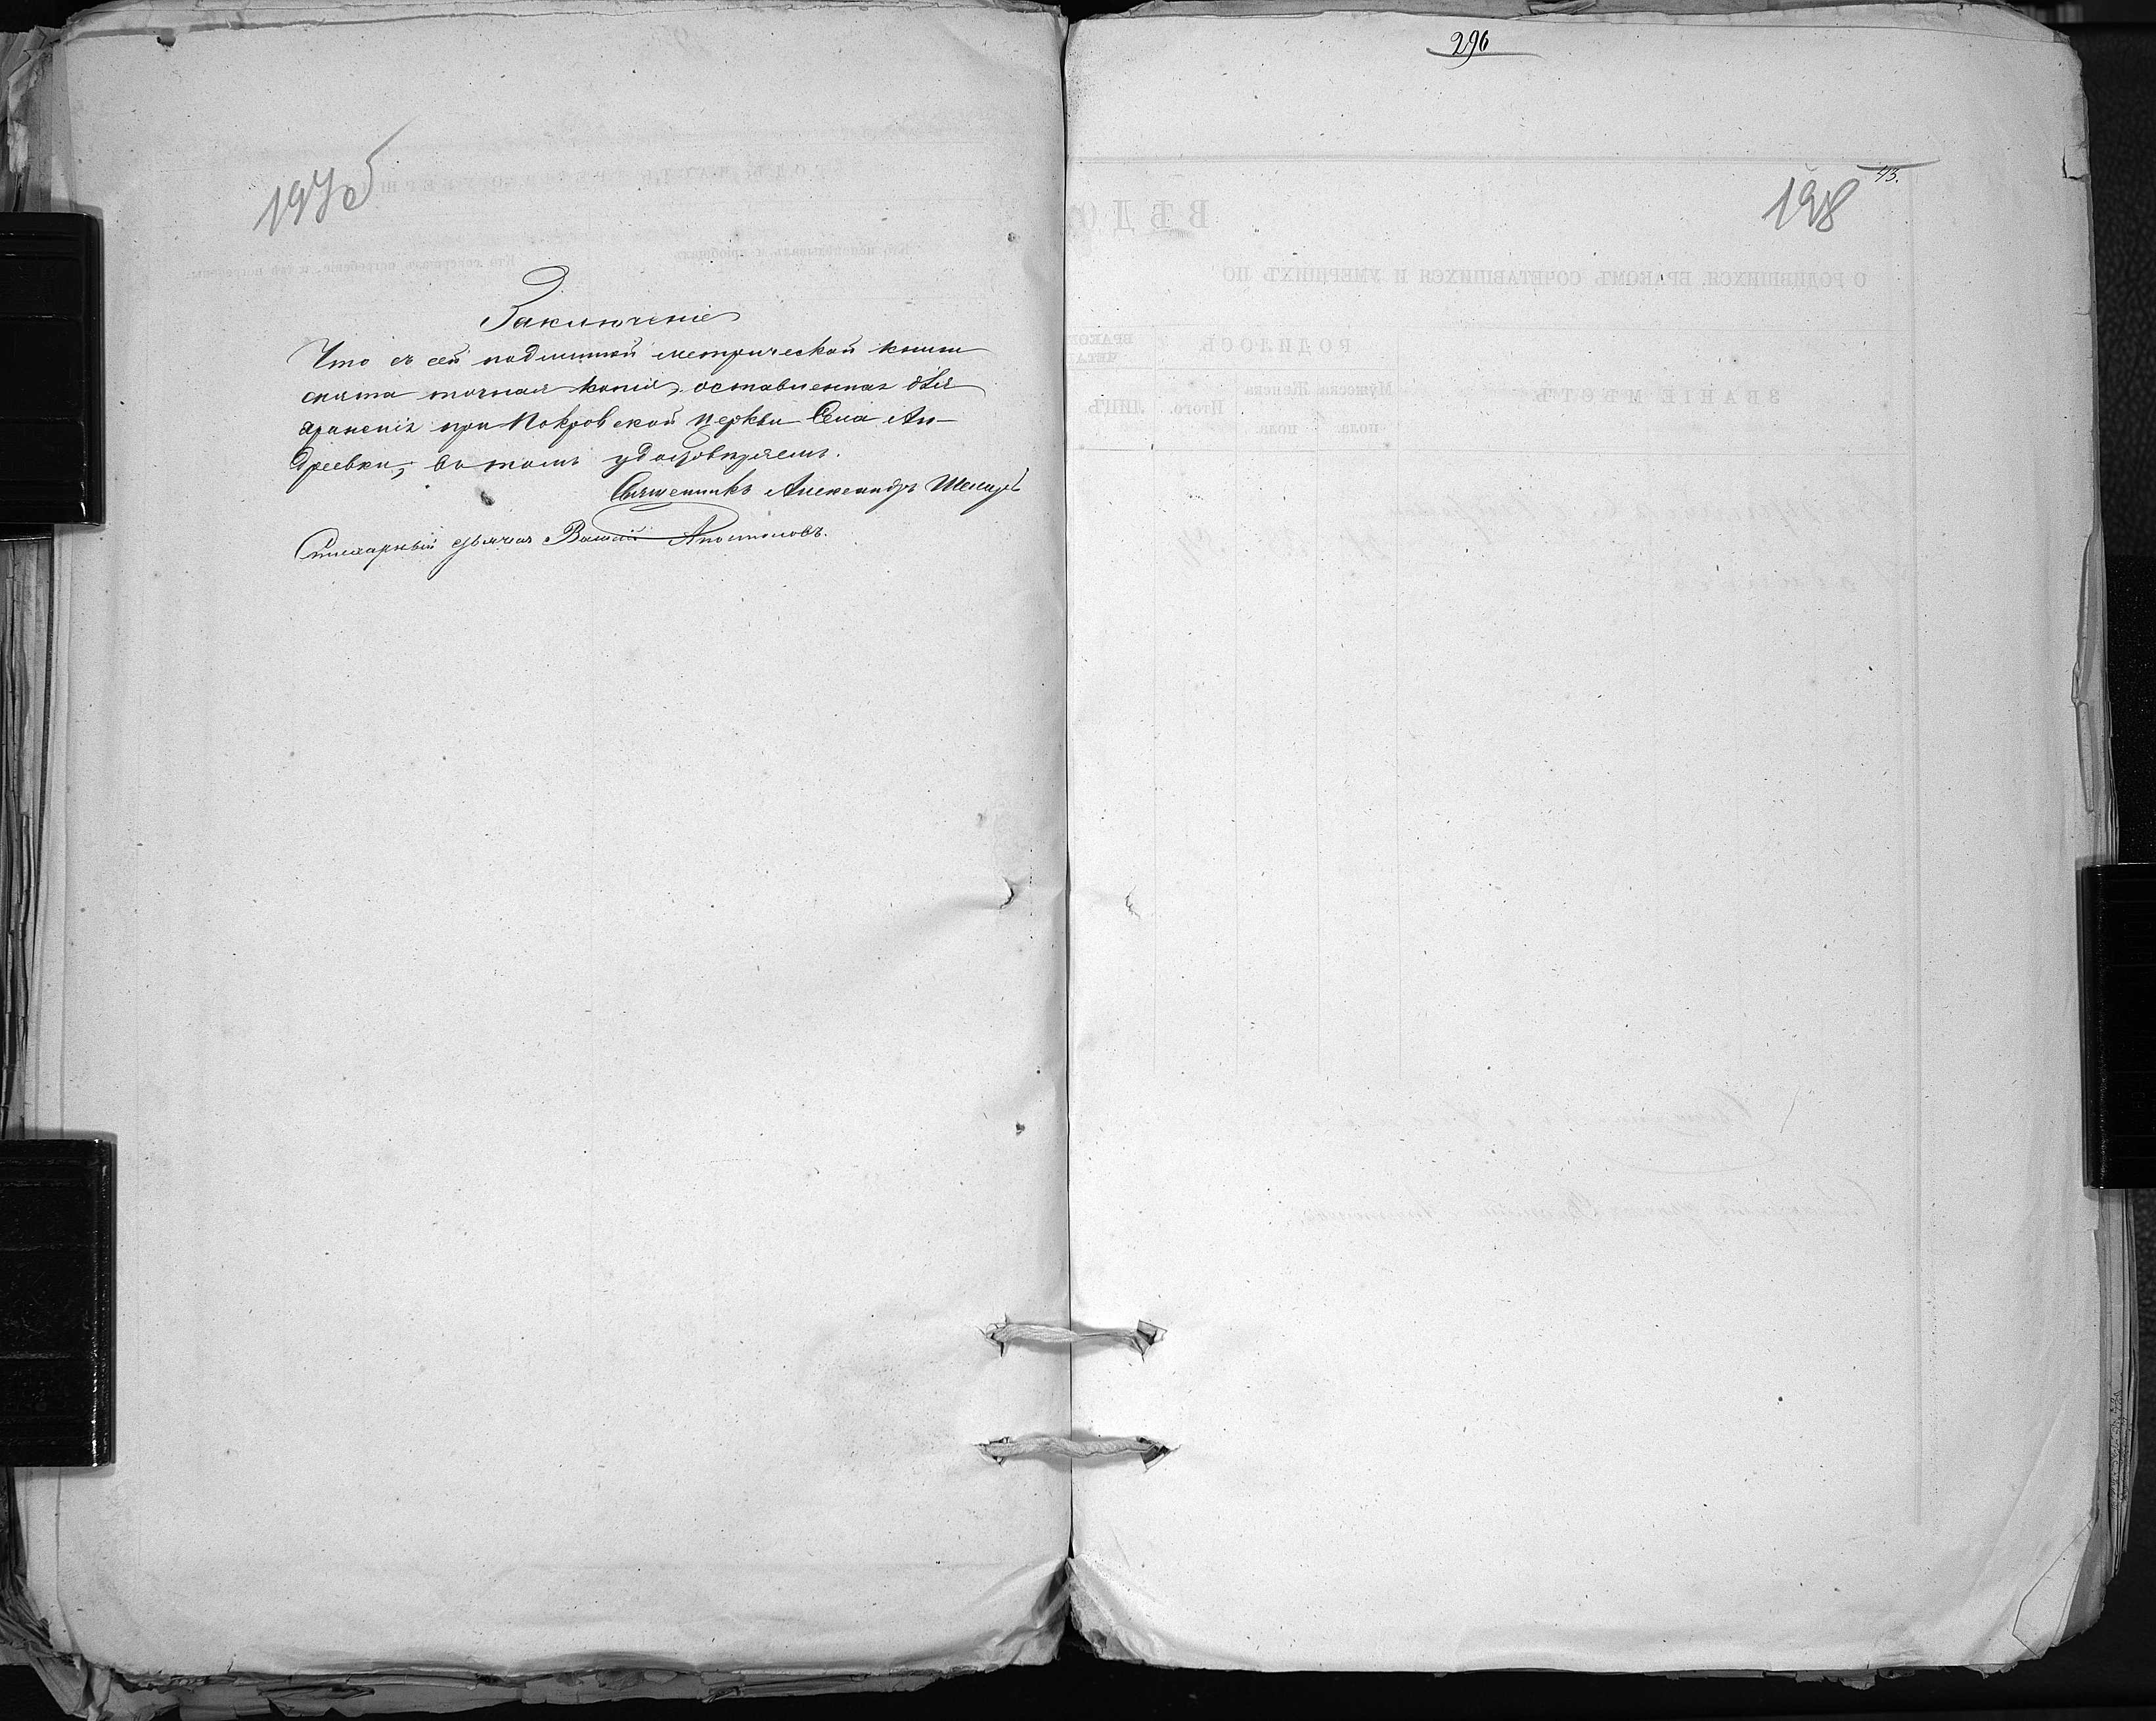 197об
Заключеніе
Что съ сей подлинной метрической книги
снята точная копія, оставленная для
храненія при Покровской церкви Села Ан-
дреевки, въ томъ удостовѣряемъ.
Священникъ Александръ
Стихарный дьячокъ Василій Апостоловъ.
296
43.
198
ВѢДО
О РОДИВШИХСЯ, БРАКОМЪ СОЧЕТАВШИХСЯ И УМЕРШИХЪ ПО
РОДИЛОСЬ
ЗВАНІЕ МѢСТЪ
Мужеска пола. Женска пола. Итого. ЛИЦЪ.